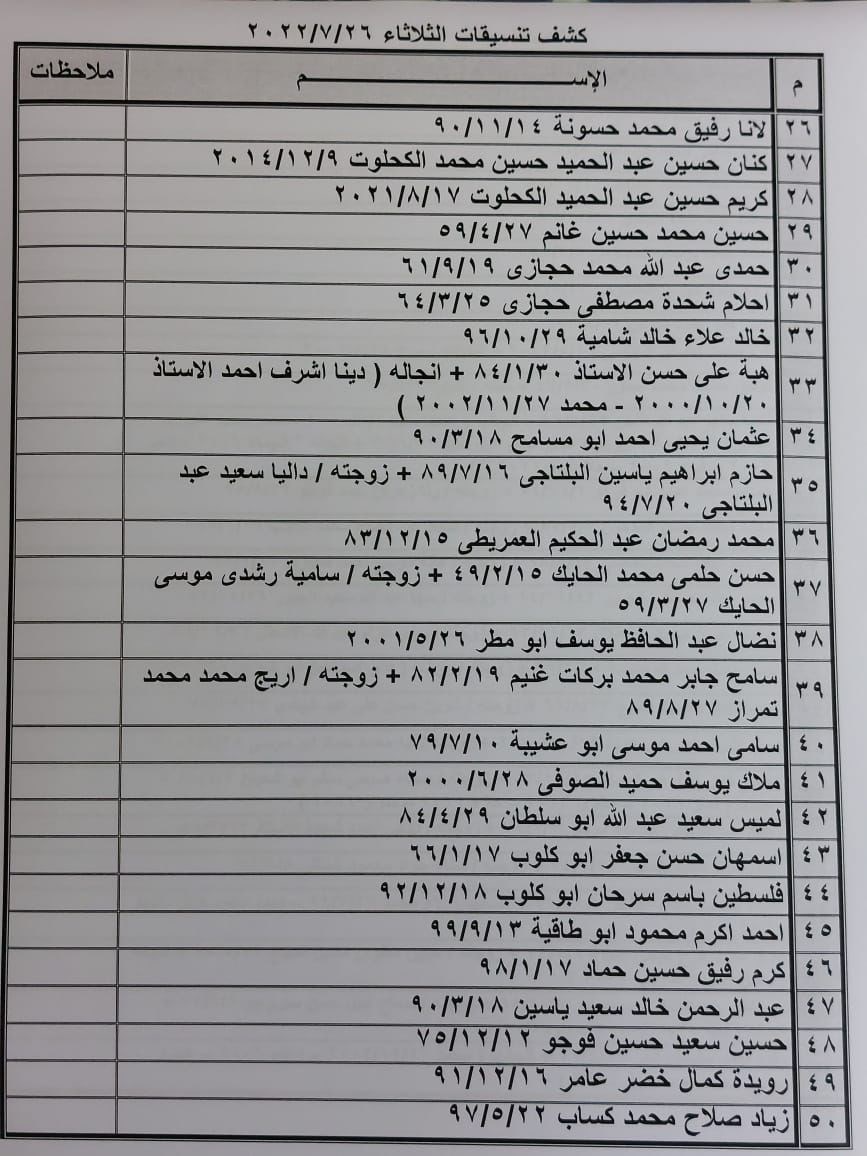 كشف تنسيقات الثلاثاء ٢٠٢٢/٧/٢٦
م الإســـــــم ملاحظات
٢٦ لانا رفيق محمد حسونة ٩٠/١١/١٤
٢٧ كنان حسين عبد الحميد حسين محمد الكحلوت ٢٠١٤/١٢/٩
٢٨ كريم حسين عبد الحميد الكحلوت ٢٠٢١/٨/١٧
٢٩ حسين محمد حسين غانم ٥٩/٤/٢٧
٣٠ حمدى عبد الله محمد حجازى ٦١/٩/١٩
٣١ احلام شحدة مصطفى حجازى ٦٤/٣/٢٥
٣٢ خالد علاء خالد شامية ٩٦/١٠/٢٩
٣٣ هبة على حسن الاستاذ ٨٤/١/٣٠ + انجاله ( دينا اشرف احمد الاستاذ
٢٠٠٠/١٠/٢٠ - محمد ٢٠٠٢/١١/٢٧ )
٣٤ عثمان يحيى احمد ابو مسامح ٩٠/٣/١٨
٣٥ حازم ابراهيم ياسين البلتاجى ٨٩/٧/١٦ + زوجته / داليا سعيد عبد
البلتاجى ٩٤/٧/٢٠
٣٦ محمد رمضان عبد الحكيم العمريطى ٨٣/١٢/١٥
٣٧ حسن حلمى محمد الحايك ٤٩/٢/١٥ + زوجته / سامية رشدى موسى
الحايك ٥٩/٣/٢٧
٣٨ نضال عبد الحافظ يوسف ابو مطر ٢٠٠١/٥/٢٦
٣٩ سامح جابر محمد بركات غنيم ٨٢/٢/١٩ + زوجته / اريج محمد محمد
تمراز ٨٩/٨/٢٧
٤٠ سامى احمد موسى ابو عشيبة ٧٩/٧/١٠
٤١ ملاك يوسف حميد الصوفى ٢٠٠٠/٦/٢٨
٤٢ لميس سعيد عبد الله ابو سلطان ٨٤/٤/٢٩
٤٣ اسمهان حسن جعفر ابو كلوب ٦٦/١/١٧
٤٤ فلسطين باسم سرحان ابو كلوب ٩٢/١٢/١٨
٤٥ احمد اكرم محمود ابو طاقية ٩٩/٩/١٣
٤٦ كرم رفيق حسين حماد ٩٨/١/١٧
٤٧ عبد الرحمن خالد سعيد ياسين ٩٠/٣/١٨
٤٨ حسين سعيد حسين فوجو ٧٥/١٢/١٢
٤٩ رويدة كمال خضر عامر ٩١/١٢/١٦
٥٠ زياد صلاح محمد كساب ٩٧/٥/٢٢